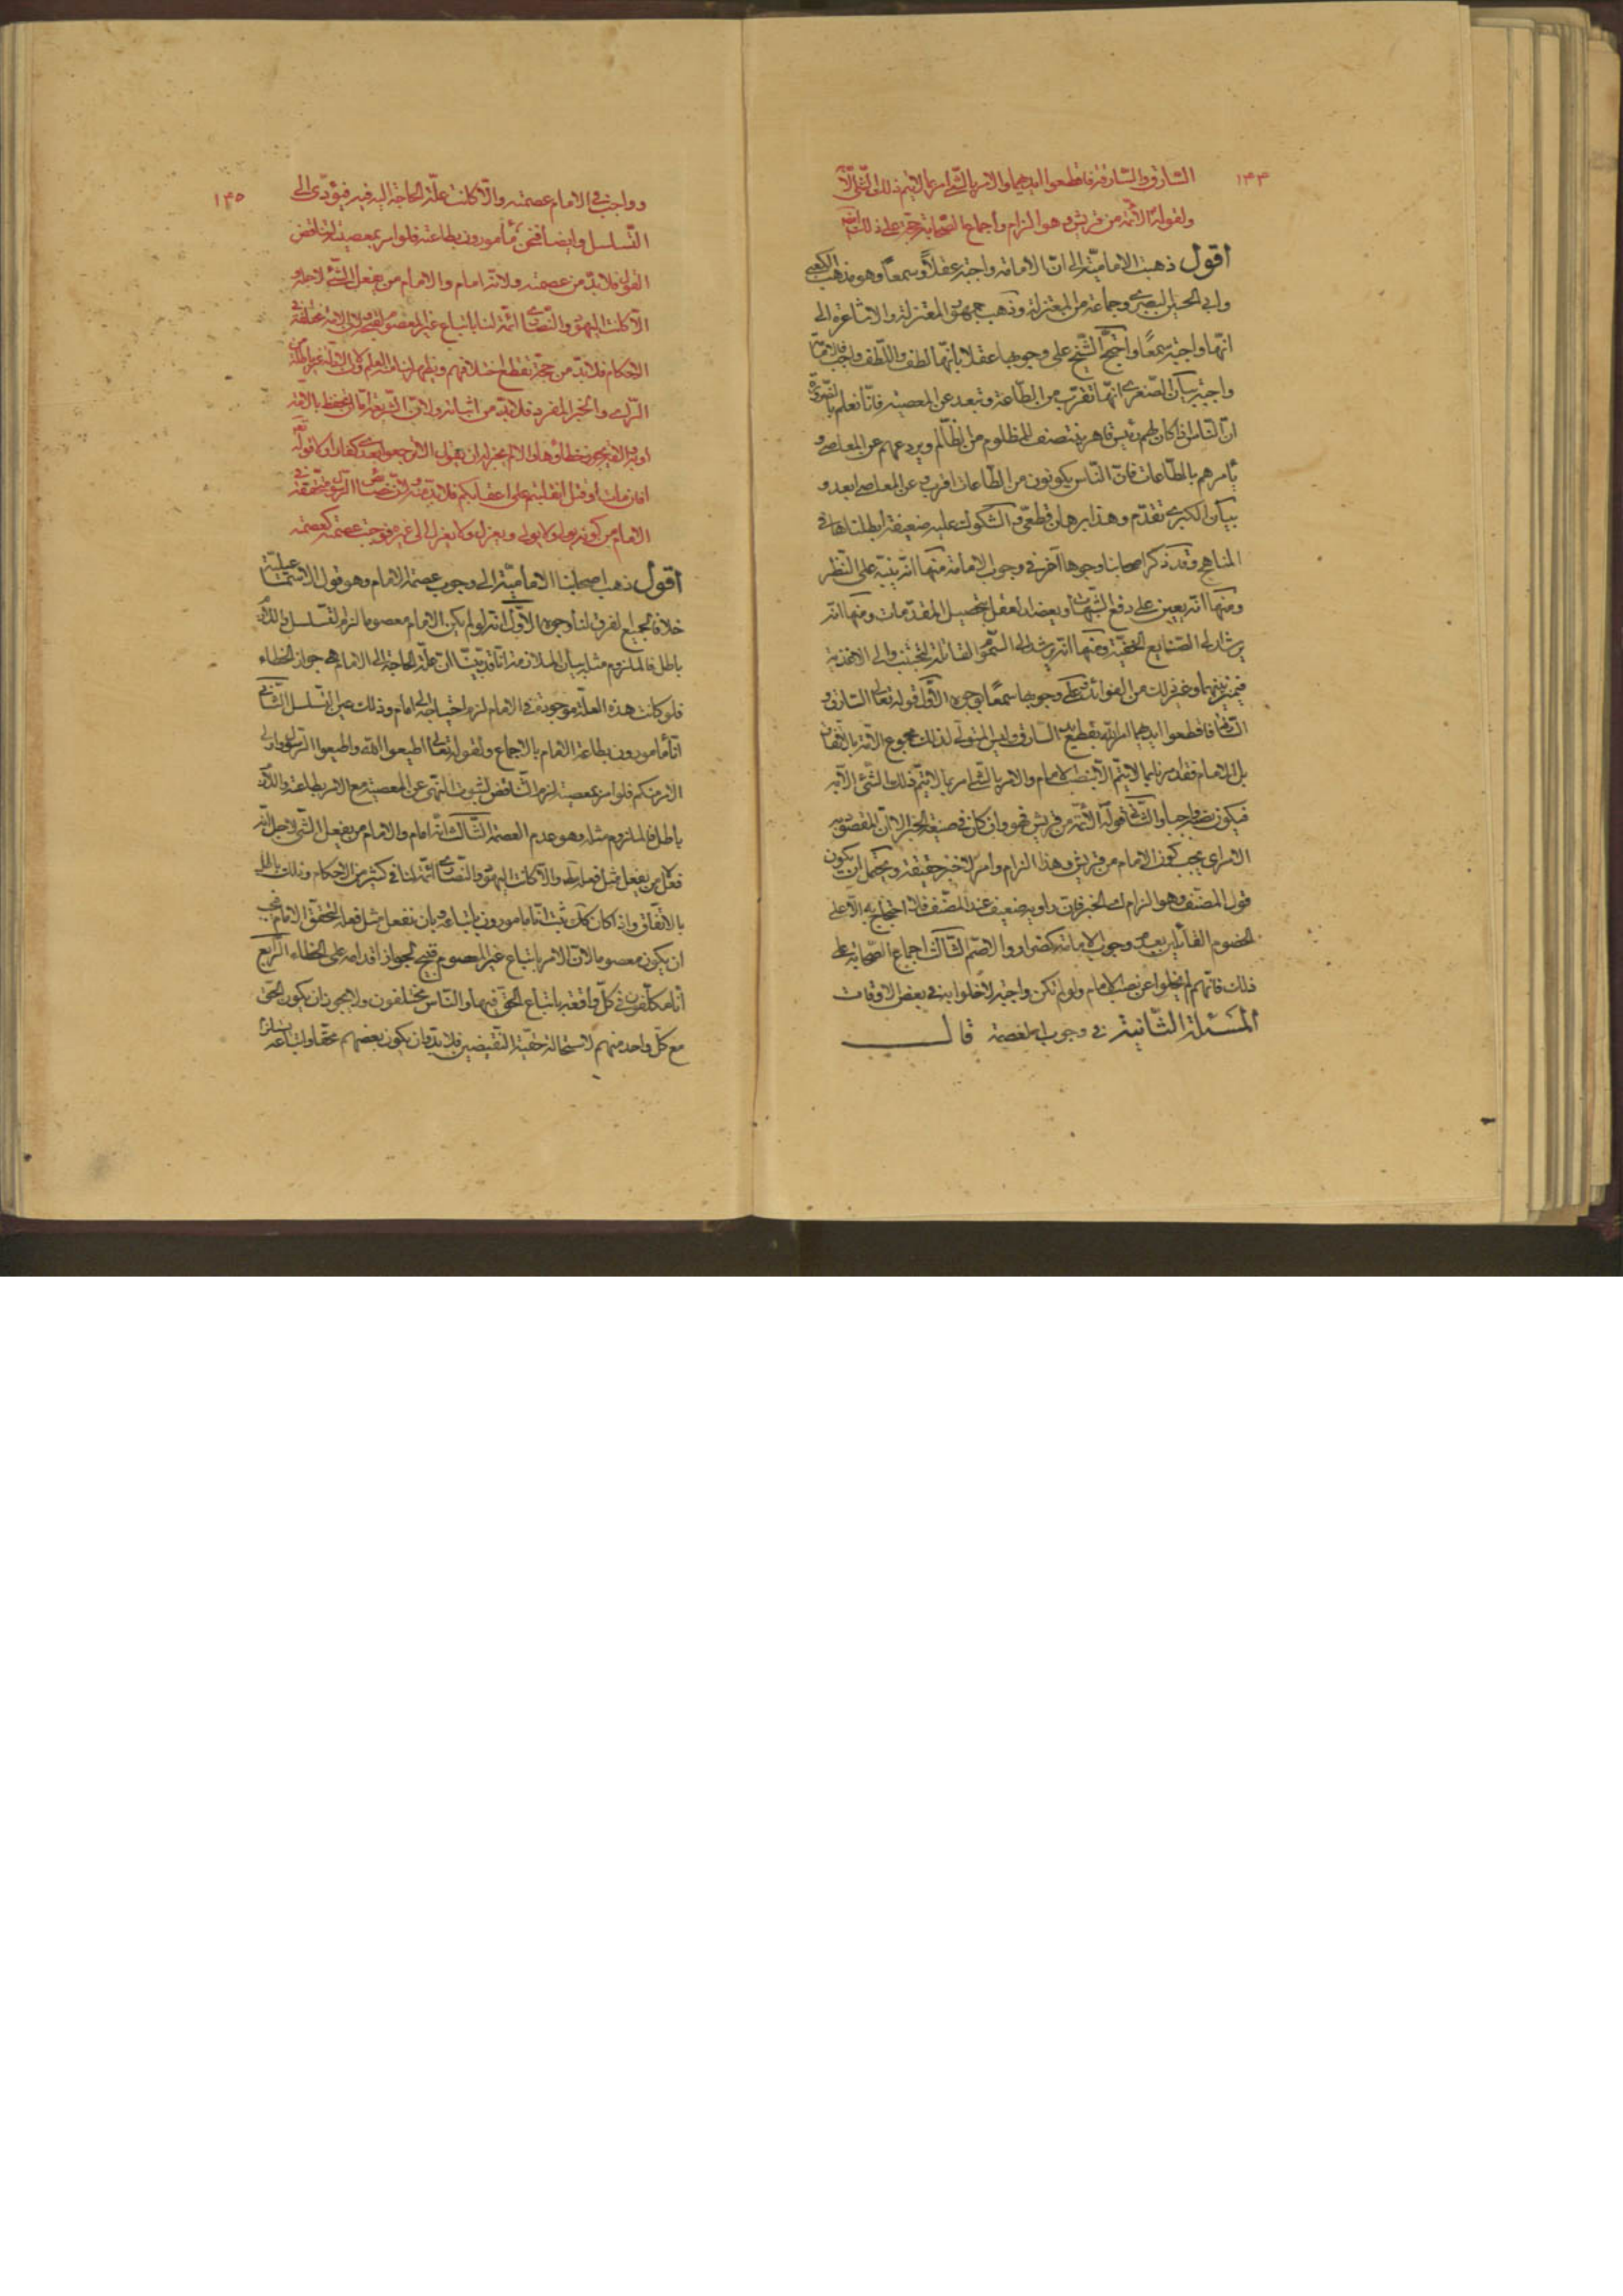 ١٤٤
السارق والسارقة فاقطعوا ايديهما والامر بالشئ امر بما لا يتم ذلك الشئ الا
ولقوله الائمة من قريش وهو الزام واجماع الصحابة حجة على ذلك
اقول ذهبت الامامية الى ان الامامة واجبة عقلا وسمعا وهو مذهب الكعبى
وابى الحسين البصرى وجماعة من المعتزلة وذهب جمهور المعتزلة والاشاعرة الى
انها واجبة سمعا واحتج الشيخ على وجوبها عقلا بانها لطف واللطف واجب
واجبة بيان الصغرى انها تقرب من الطاعة وتبعد عن المعصية فانا نعلم بالضرورة
ان الناس اذا كان لهم رئيس قاهر ينتصف للمظلوم من الظالم ويردعهم عن المعاصى و
يأمرهم بالطاعات فان الناس يكونون من الطاعات اقرب وعن المعاصى ابعد و
بيان الكبرى تقدم وهذا برهان قطعى والشكوك عليه ضعيفة ابطلناها فى
المناهج وقد ذكر اصحابنا وجوها آخر فى وجوب الامامة منها انه ينبه على النظر
ومنها انه يعين على دفع الشبهات ويعضد العقل بتحصيل المقدمات ومنها انه
يرشد الى الصنايع الخفية ومنها انه يرشد الى السموم القاتلة لتجتنب والى الاغذية
فيميز بينهما وغير ذلك من الفوائد وعلى وجوبها سمعا بوجوه الاول قوله تعالى السارق و
السارقة فاقطعوا ايديهما امر الله بقطع يد السارق وليس المتولى لذلك مجموع الامة بالاتفاق
بل الامام فقد امرنا بما لا يتم الا بنصب الامام والامر بالشئ امر بما لا يتم ذلك الشئ الا به
فيكون نصبه واجبا والثانى قوله الائمة من قريش فهو وان كان فى صيغة الخبر الا ان المقصود به
الامر اى يجب كون الامام من قريش وهذا الزام وامر لا خبر حقيقة ويحتمل ان يكون
قول المصنف وهو الزام لان الخبر فان راويه ضعيف عند المصنف فلا احتجاج به الا على
الخصوم القائلين بعدم وجوب الامامة كضرار والاصم الثالث اجماع الصحابة على
ذلك فانهم لم يخلوا عن نصب الامام ولو لم تكن واجبة لاخلوا به فى بعض الاوقات
المسئلة الثانية فى وجوب العصمة قال
١٤٥
وواجب فى الامام عصمته والا كانت علة الحاجة اليه فيه فيؤدى الى
التسلسل وايضا فنحن مأمورون بطاعته فلو امر بمعصية لتناقض
القول فلا بد من عصمته ولانه امام والامام من يفعل الشئ لاجله و
الا كانت اليهود والنصارى ائمة لنا باتباع غير المعصوم قبيح ولان الامة مختلفة فى
الاحكام فلا بد من حجة تقطع خلافهم
الراى والخبر المفرد فلا بد من اثباته ولان الشريعة اما ان تحفظ بالامة
او به والامة يجوز خطاؤها والا لم يجز له ان يقول الا لا ترجعوا بعدى كفارا وكا قوله
افان مات او قتل انقلبتم على اعقابكم فلا بد منه ولان خصائص الرسول متحققة فى
الامام من كونه يولى ولا يولى ويعزل ولا يعزل الى غيره فوجب عصمته كعصمته
اقول ذهب اصحابنا الامامية الى وجوب عصمة الامام وهو قول الاسماعيلية
خلافا لجميع الفرق لنا وجوه الاول انه لو لم يكن الامام معصوما لزم التسلسل واللازم
باطل فالملزوم مثله بيان الملازمة انا قد بينا ان علة الحاجة الى الامام هى جواز الخطاء
فلو كانت هذه العلة موجودة فى الامام لزم احتياجه الى امام وذلك عين التسلسل الثانى
انا مأمورون بطاعة الامام بالاجماع ولقوله تعالى اطيعوا الله واطيعوا الرسول واولى
الامر منكم فلو امر بمعصية لزم التناقض لثبوت النهى عن المعصية مع الامر بطاعته واللازم
باطل فالملزوم مثله وهو عدم العصمة الثالث انه امام والامام من يفعل الشئ لاجل انه
فعل لا من يفعل مثل فعله والا كانت اليهود والنصارى ائمة لنا فى كثير من الاحكام وذلك باطل
بالاتفاق واذا كان كذلك ثبت اننا مأمورون باتباعه وبان نفعل مثل فعله لتحقق الامام فيجب
ان يكون معصوما لان الامر باتباع غير المعصوم قبيح لجواز اقدامه على الخطاء الرابع
انا مكلفون فى كل واقعة باتباع الحق فيها والناس مختلفون ولا يجوز ان يكون الحق
مع كل واحد منهم لاستحالة حقية النقيضين فلا بد وان يكون بعضهم محقا واتباعه